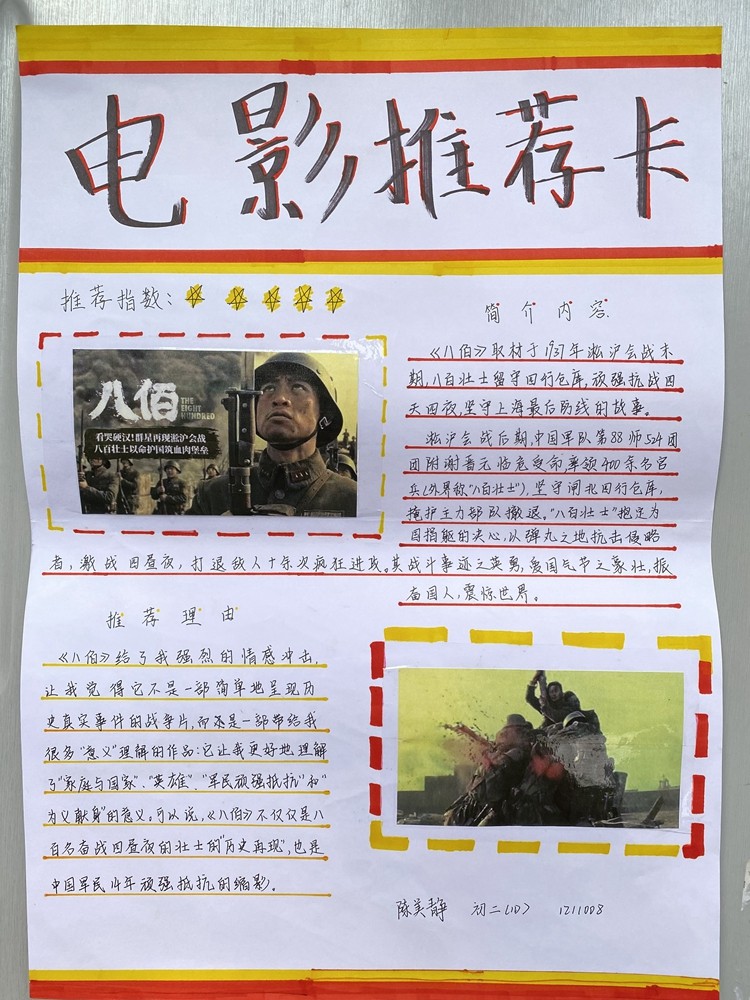 电影推荐卡
推荐指数：
八佰
THE
EIGHT
HUNDRED
看哭硬汉！群星再现淞沪会战
八百壮士以命护国筑血肉堡垒
简介内容
《八佰》取材于1937年淞沪会战末
期，八百壮士留守四行仓库，顽强抗战四
天四夜，坚守上海最后防线的故事。
淞沪会战后期，中国军队第88师524团
团附谢晋元临危受命率领400余名官
兵（外界称“八百壮士”），坚守闸北四行仓库，
掩护主力部队撤退。“八百壮士”抱定为
国捐躯的决心，以弹丸之地抗击侵略
者，激战四昼夜，打退敌人十余次疯狂进攻。其战斗事迹之英勇，爱国气节之豪壮，振
奋国人，震惊世界。
推荐理由
《八佰》给了我强烈的情感冲击，
让我觉得它不是一部简单地呈现历
史真实事件的战争片，而还是一部带给我
很多“意义”理解的作品：它让我更好地理解
了“家庭与国家”、“英雄”、“军民顽强抵抗”和“
为义献身”的意义。可以说，《八佰》不仅仅是八
百名奋战四昼夜的壮士的“历史再现”，也是
中国军民14年顽强抵抗的缩影。
陈美静 初二（10） 1211008